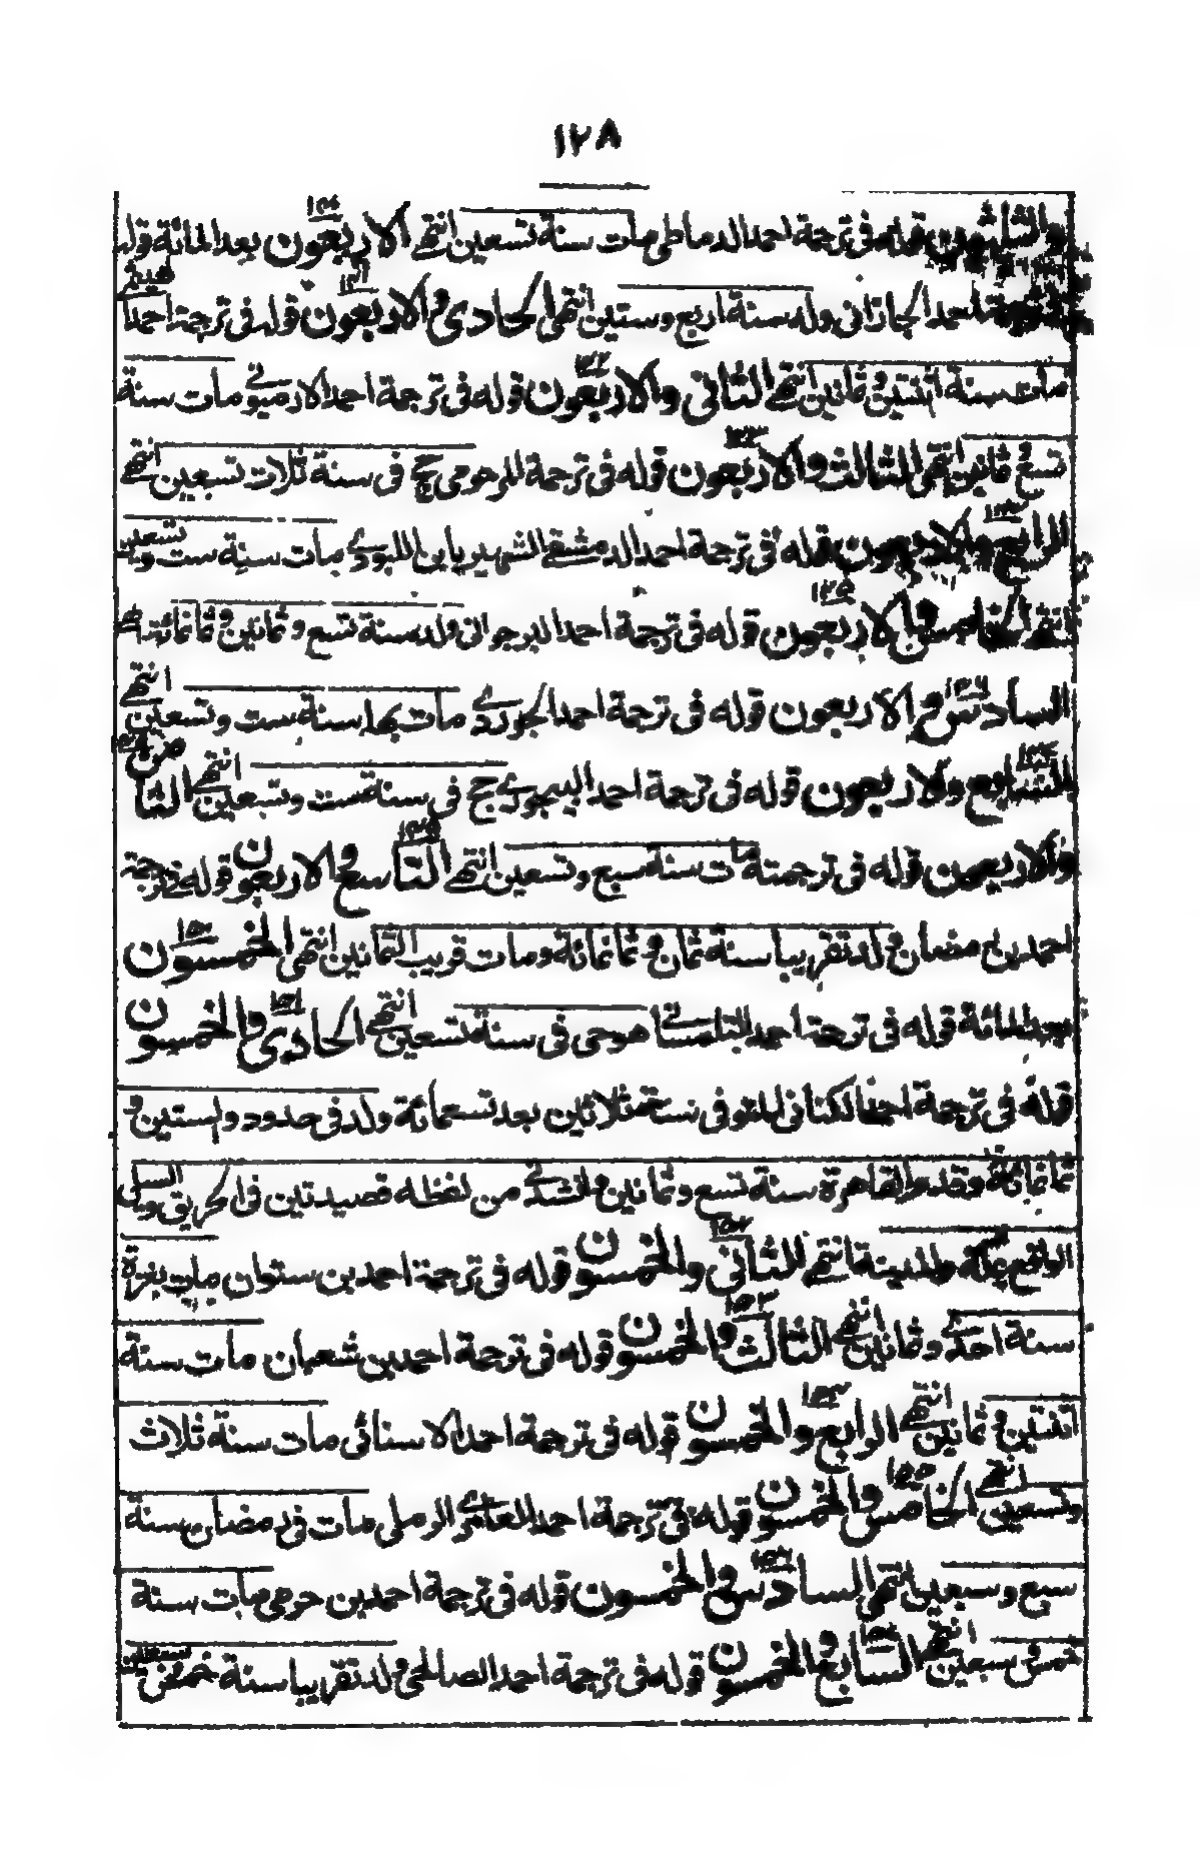 ١٢٨
والثلثون قوله فى ترجمة احمد الدماطى مات سنة تسعين انتهى الاربعون بعد المائة قوله ١٤٠
احمد الجازانى ولد سنة اربع وستين انتهى الحادى والاربعون قوله فى ترجمة احمد ١٤١
مات سنة اثنتين وثمانين انتهى الثانى والاربعون قوله فى ترجمة احمد الارميونى مات سنة ١٤٢
تسع ثمانين انتهى الثالث والاربعون قوله فى ترجمة المرحومى حج فى سنة ثلاث تسعين انتهى ١٤٣
الرابع والاربعون قوله فى ترجمة احمد الدمشقى الشهير بابن اللبودى مات سنة ست وتسعين
انتهى الخامس والاربعون قوله فى ترجمة احمد البرجوانى ولد سنة تسع وثمانين وثمانمائة انتهى ١٤٥
السادس والاربعون قوله فى ترجمة احمد الجوردى مات بها سنة ست وتسعين انتهى ١٤٦
السابع والاربعون قوله فى ترجمة احمد البيجورى حج فى سنة ست وتسعين انتهى الثامن
والاربعون قوله فى ترجمته مات سنة سبع وتسعين انتهى التاسع والاربعون قوله فى ترجمة
احمد بن رمضان ولد تقريبا سنة ثمان وثمانمائة ومات قريب الثمانين انتهى الخمسون ١٥٠
بعد المائة قوله فى ترجمة احمد التلمسانى هوحى فى سنة تسعين انتهى الحادى والخمسون ١٥١
قوله فى ترجمة احمد الكنانى المتوفى سنة ثلاثين بعد تسعمائة ولد فى حدود والستين و
ثمانمائة وقدم القاهرة سنة تسع وثمانين وانشدنى من لفظه قصيدتين فى الحريق والسيل
الواقع بمكة والمدينة انتهى الثانى والخمسون قوله فى ترجمة احمد بن ستوان مات بغزة ١٥٢
سنة احدى وثمانين انتهى الثالث والخمسون قوله فى ترجمة احمد بن شعبان مات سنة ١٥٣
اثنتين وثمانين انتهى الرابع والخمسون قوله فى ترجمة احمد الاسنائى مات سنة ثلاث ١٥٤
وتسعين انتهى الخامس والخمسون قوله فى ترجمة احمد العامرى الرملى مات فى رمضان سنة ١٥٥
سبع وسبعين انتهى السادس والخمسون قوله فى ترجمة احمد بن حرمى مات سنة ١٥٦
خمس وسبعين انتهى السابع والخمسون قوله فى ترجمة احمد الصالحى ولد تقريبا سنة خمس